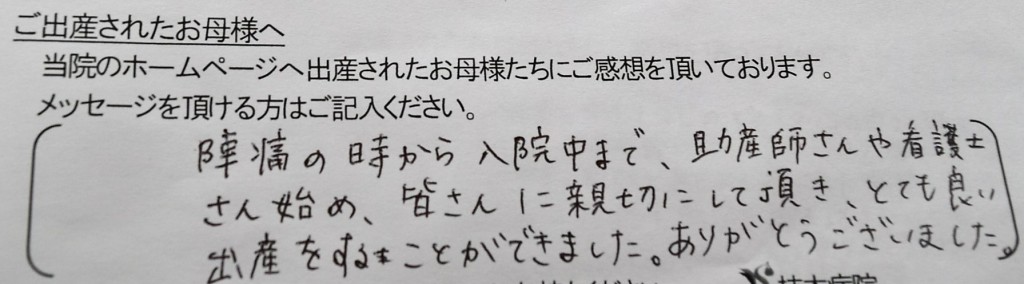 ご出産されたお母様へ
当院のホームページへ出産されたお母様たちにご感想を頂いております。
メッセージを頂ける方はご記入ください。
陣痛の時から入院中まで、助産師さんや看護士
さん始め、皆さんに親切にして頂き、とても良い
出産をすることができました。ありがとうございました。